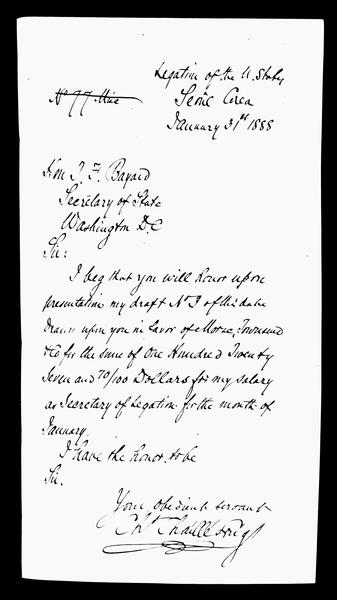 Legation of the U. States
No 77 Misc
Seoul Corea
January 31st 1888
Hon T. F. Bayard
Secretary of State
Washington D.C
Sir:
I beg that you will honor upon
presentation my draft No 3 of this date
drawn upon you in favor of Morse, Townsend
&Co for the sum of One Hundred Twenty
Seven and 70/100 Dollars for my salary
as Secretary of Legation for the month of
January.
I have the honor to be
Sir.
Your obedient servant
Chaillé Long